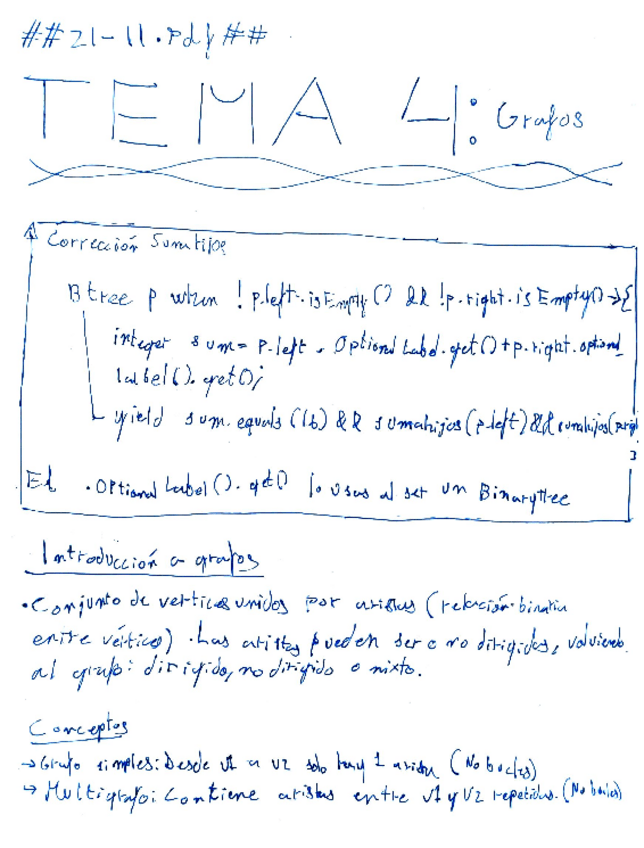 ##21-11.pdf##
TEMA 4: Grafos
Corrección Sumahijos
Btree p when !p.left.isEmpty() && !p.right.isEmpty() → {
integer sum = p.left.OptionalLabel.get() + p.right.optional
label().get();
yield sum.equals(lb) && sumahijos(p.left) && sumahijos(p.right
}
El .OptionalLabel().get() lo usas al ser un BinaryTree
Introducción a grafos
• Conjunto de vertices unidos por aristas (relación binaria
entre vértices) • Las aristas pueden ser o no dirigidas, volviendo
al grafo: dirigido, no dirigido o mixto.
Conceptos
→ Grafo simples: Desde v1 a v2 solo hay 1 arista (No bucles)
→ Multigrafo: Contiene aristas entre v1 y v2 repetidas. (No bucles)